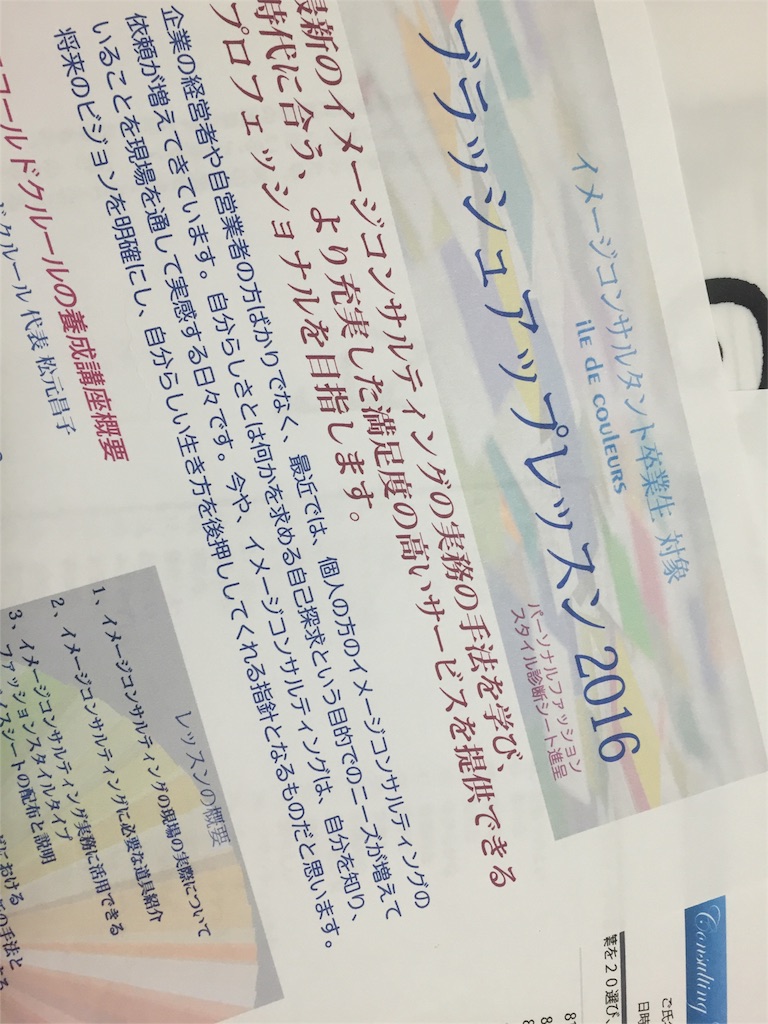 イメージコンサルタント卒業生 対象
iLE de couleurs
ブラッシュアップレッスン 2016
パーソナルファッション
スタイル診断シート進呈
最新のイメージコンサルティングの実務の手法を学び、
時代に合う、より充実した満足度の高いサービスを提供できる
プロフェッショナルを目指します。
企業の経営者や自営業者の方ばかりでなく、最近では、個人の方のイメージコンサルティングの
依頼が増えてきています。自分らしさとは何かを求める自己探求という目的でのニーズが増えて
いることを現場を通して実感する日々です。今や、イメージコンサルティングは、自分を知り、
将来のビジョンを明確にし、自分らしい生き方を後押ししてくれる指針となるものだと思います。
コールドクルールの養成講座概要
ドクルール 代表 松元昌子
レッスンの概要
1、イメージコンサルティングの現場の実際について
2、イメージコンサルティングに必要な道具紹介
3、イメージコンサルティング実務に活用できる
ファッションスタイルタイプ
シートの配布と説明
における
の手法と
Consulting
ご氏
日時
葉を20選び、